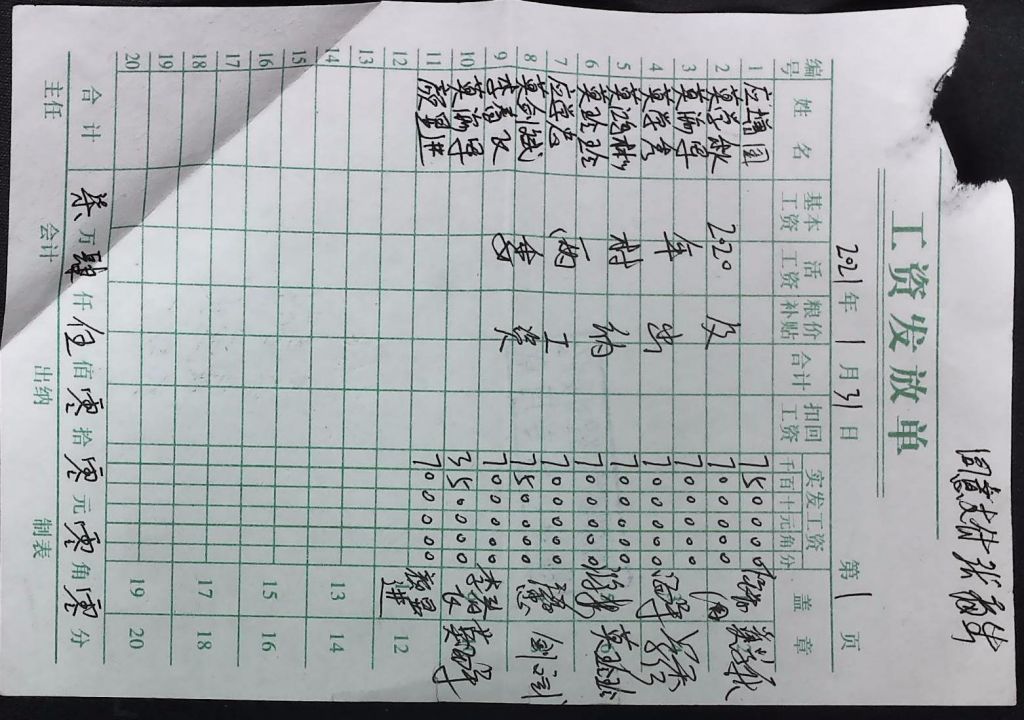 同意支付
工资发放单
2021年1月31日 第1页
编号 姓名 基本工资 活工资 粮价补贴 合计 扣回工资 实发工资 千百十元角分 盖章
1 应增国 750000
2 莫学敏 2020 及 700000
3 700000
4 莫学秀 年 出 700000
5 莫鸿彬 村 纳 700000
6 莫珍珍 700000 莫珍珍
7 应学忠 两 工 700000
8 750000
9 委 资 700000
10 350000
11 颜星进 700000 颜星进
12 12
13 13
14 14
15 15
16 16
17 17
18 18
19 19
20 20
合计 柒万肆仟伍佰零拾零元零角零分
主任 会计 出纳 制表